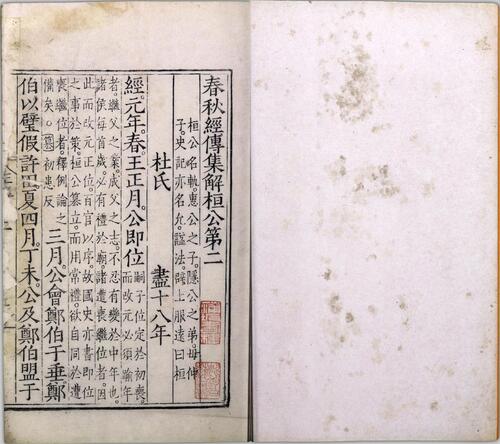 春秋經傳集解桓公第二
桓公名軌。惠公之子。隱公之弟。母仲
子。史記亦名允。諡法。辟土服遠曰桓
杜氏 盡十八年
經。元年。春。王正月。公即位
嗣子位定於初喪。
而改元必須踰年
者。繼父之業。成父之志。不忍有變於中年也。
諸侯每首歲。必有禮於廟諸遭喪繼位者。因
此而改元正位。百官以序故國史亦書即位
之事於策。桓公篡立。而用常禮。欲自同於遭
喪繼位者。釋例論之
備矣。○篡初患反
三月。公會鄭伯于垂鄭
伯以璧假許田夏四月。丁未。公及鄭伯盟于